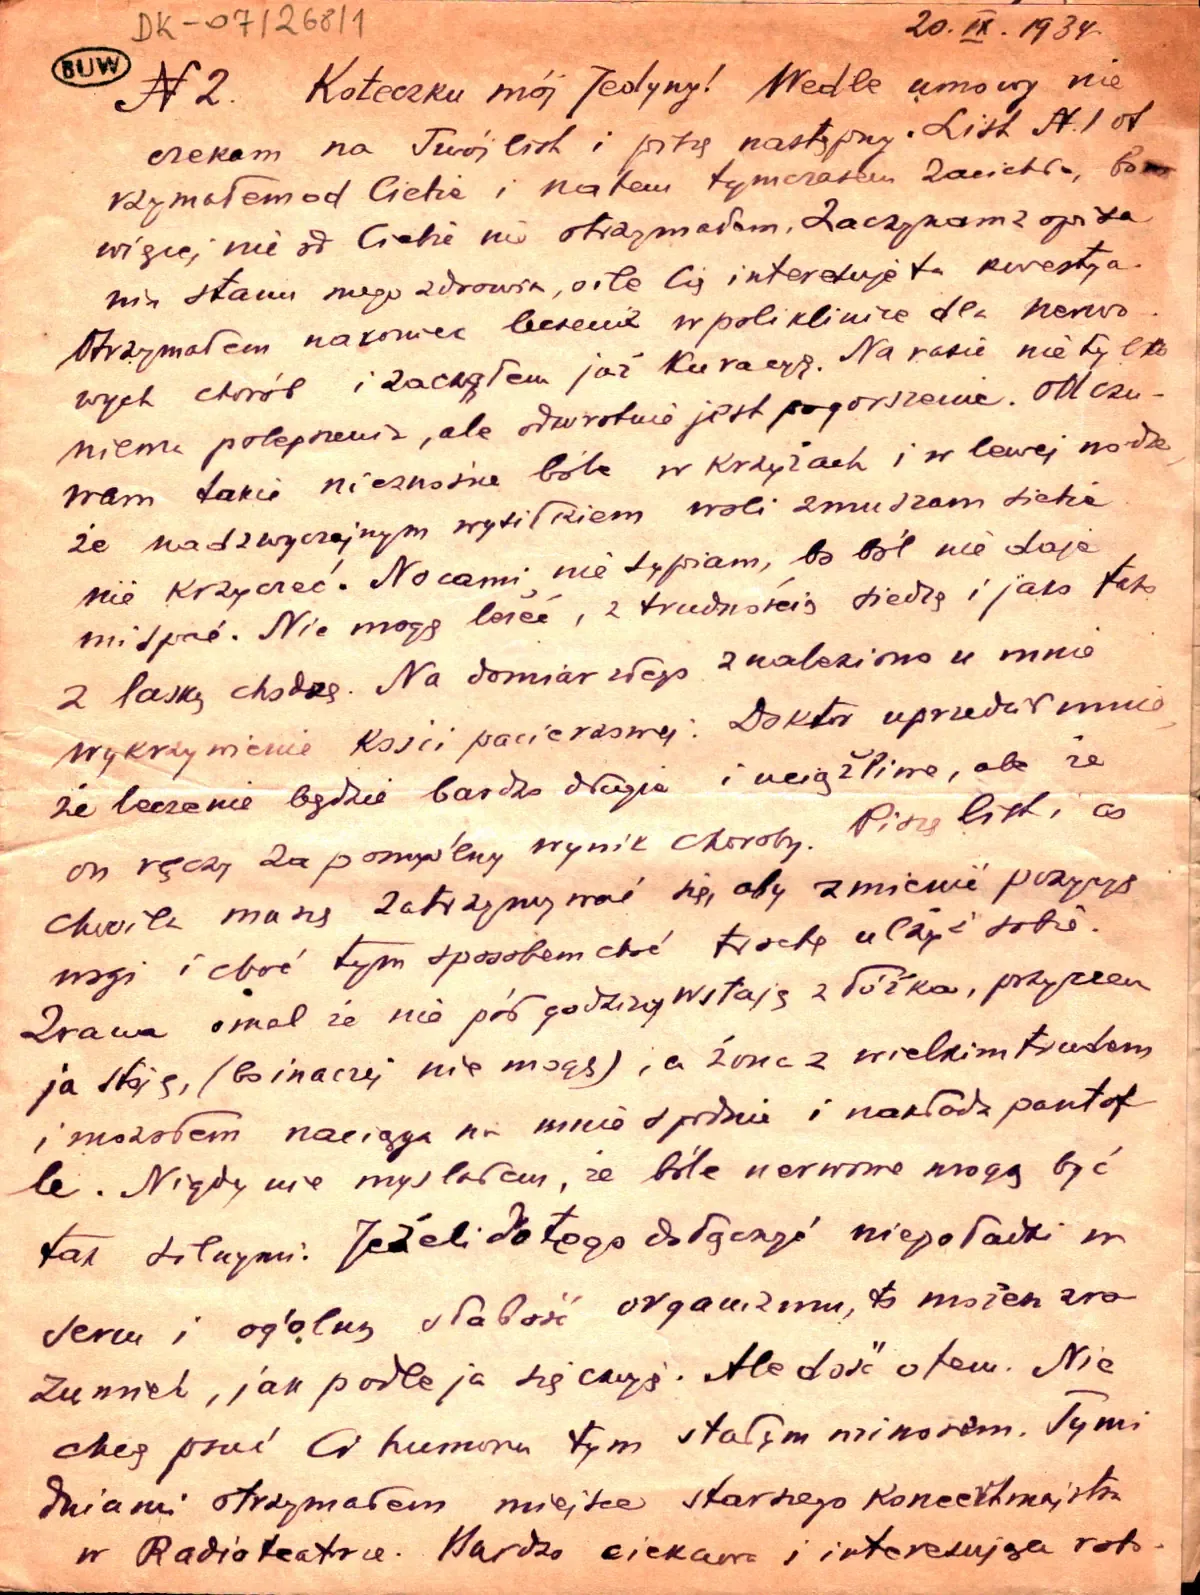 DK-07/268/1
20.IX.1934.
BUW
N 2. Koteczku mój Jedyny! Wedle umowy nie
czekam na Twój list i piszę następny. List N.1 ot
rzymałem od Ciebie i natem tymczasem zacichło, bom
więcej nic od Ciebie nie otrzymałem. Zaczynam z opisa
nia stanu mego zdrowia, o ile Cię interesuje ta kwestya.
Otrzymałem nakoniec leczenie w poliklinice dla nerwo-
wych chorób i zacząłem już kuracyę. Na razie nie tylko
niema polepszenia, ale odwrotnie jest pogorszenie. Odczu-
wam takie nieznośne bóle w krzyżach i w lewej nodze,
że nadzwyczajnym wysiłkiem woli zmuszam siebie
nie krzyczeć. Nocami nie sypiam, bo ból nie daje
mi spać. Nie mogę leżeć, z trudnością siedzę i jako tako
z laską chodzę. Na domiar złego znaleziono u mnie
wykrzywienie kości pacierzowej. Doktór uprzedził mnie,
że leczenie będzie bardzo długie i uciążliwe, ale że
on ręczy za pomyślny wynik choroby. Piszę list i co
chwila muszę zatrzymywać się, aby zmienić pozycyę
nogi i choć tym sposobem choć trochę ulżyć sobie.
Zrana omal że nie pół godziny wstaję z łóżka, przyczem
ja stoję, (bo inaczej nie mogę), a żona z wielkim trudem
i mozołem naciąga na mnie spodnie i nakłada pantof
le. Nigdy nie myślałem, że bóle nerwowe mogą być
tak silnymi. Jeżeli do tego dołączyć niepoładki w
sercu i ogólną słabość organizmu, to możesz zro
zumieć, jak podle ja się czuję. Ale dość o tem. Nie
chcę psuć Ci humoru tym stałym minorem. Tymi
dniami otrzymałem miejsce starszego koncertmajstra
w Radioteatrze. Bardzo ciekawa i interesująca robo-